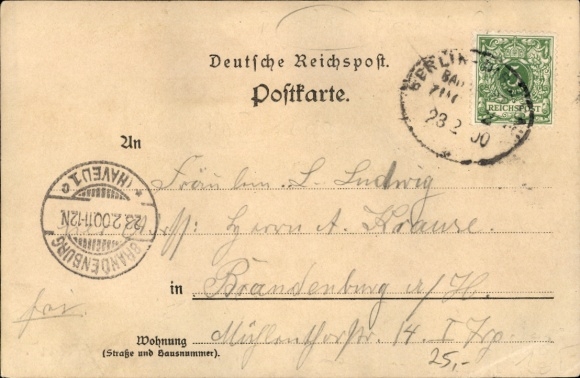 Deutsche Reichspost.
Postkarte.
BERLIN
BAHNPOST
ZUG
23 2 00
5
REICHSPOST
An
Fräulein L. Ludwig
Herrn A. Krause.
BRANDENBURG (HAVEL) 1 c
23.2.00.11-12N
in Brandenburg a/H.
frei.
Wohnung Mühlenthorstr. 14. I Trp
(Straße und Hausnummer).
25,-